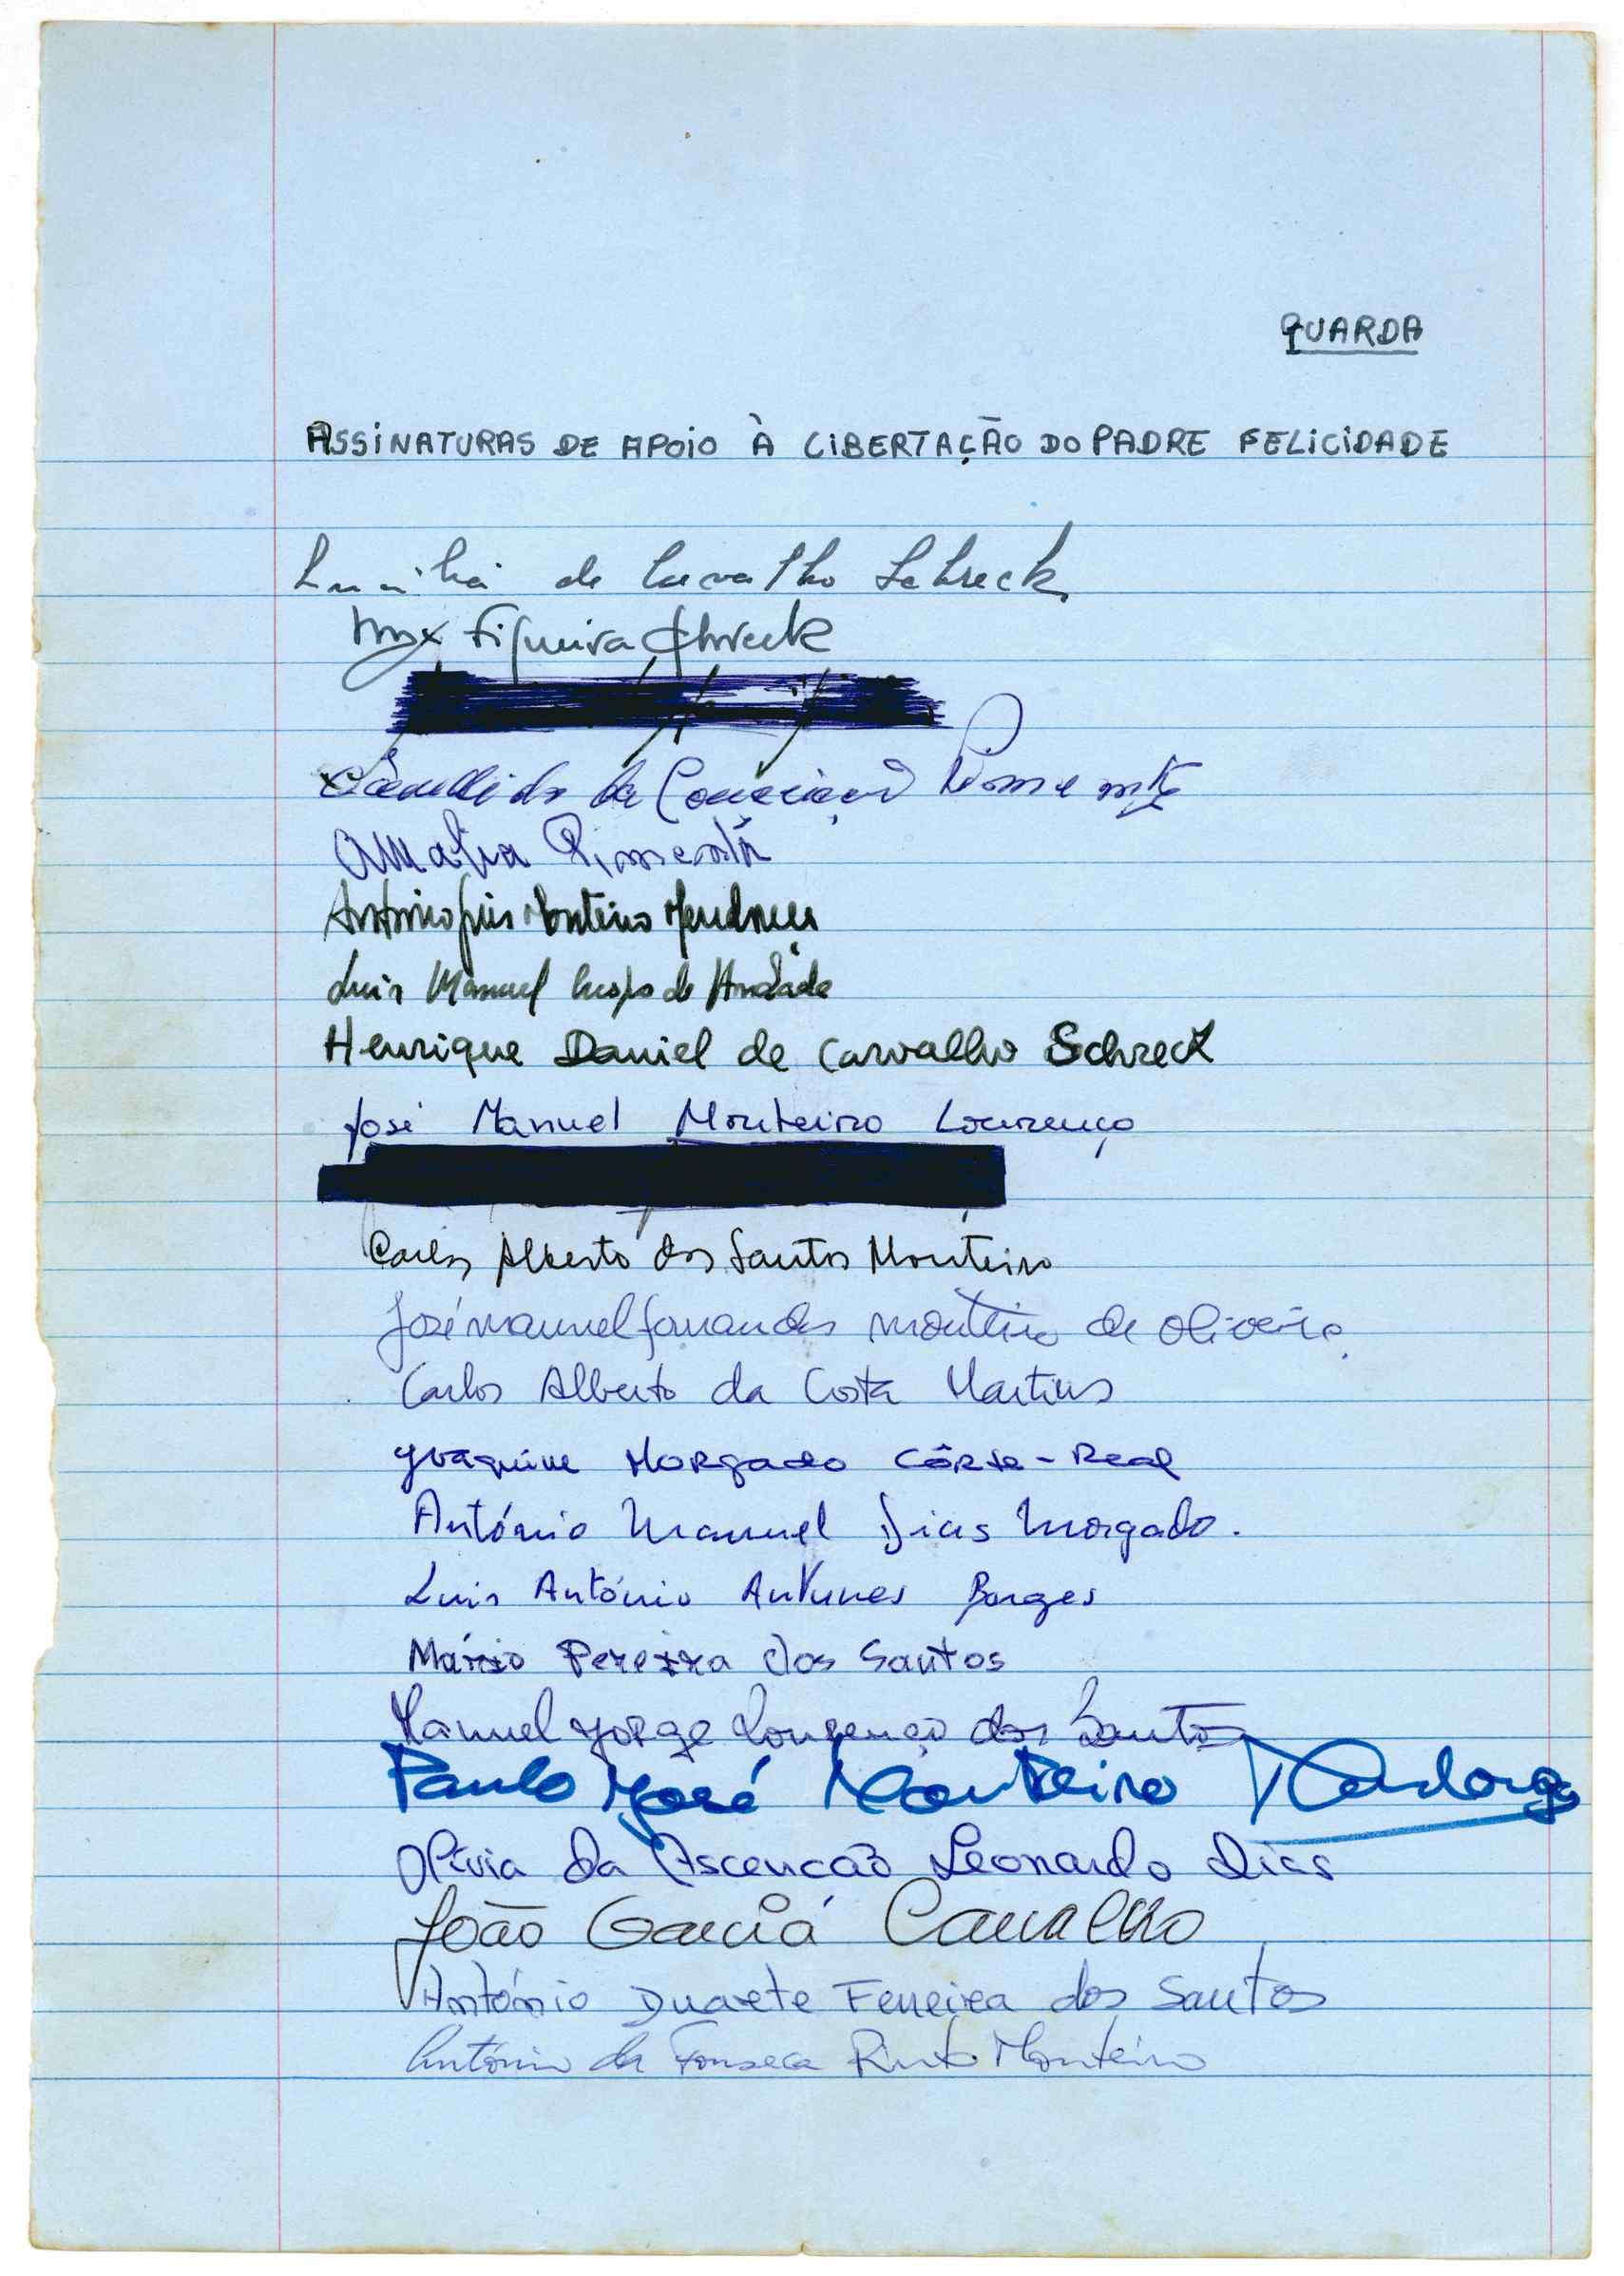 GUARDA
ASSINATURAS DE APOIO À LIBERTAÇÃO DO PADRE FELICIDADE
de Carvalho Schreck
Figueira Schreck
da Conceição Pimenta
Amalia Pimenta
António Luís Monteiro Mendonça
Luis Manuel Crespo de Andrade
Henrique Daniel de Carvalho Schreck
José Manuel Monteiro Lourenço
Carlos Alberto dos Santos Monteiro
José manuel fernandes monteiro de oliveira
Carlos Alberto da Costa Martins
Joaquim Morgado Côrte-Real
António Manuel Dias Morgado.
Luis António Antunes Borges
Mário Pereira dos Santos
Manuel Jorge Lourenço dos Santos
Paulo José Monteiro
Olívia da Ascencão Leonardo Dias
João Garcia Carvalho
António Duarte Ferreira dos Santos
António da Fonseca Pinto Monteiro